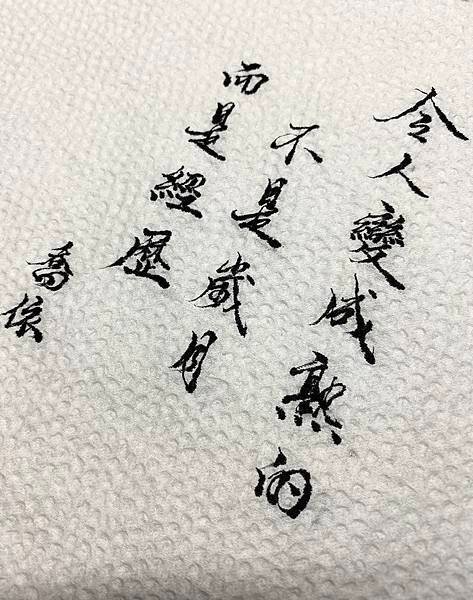 令人變成熟的
不是歲月
而是經歷
喬埃